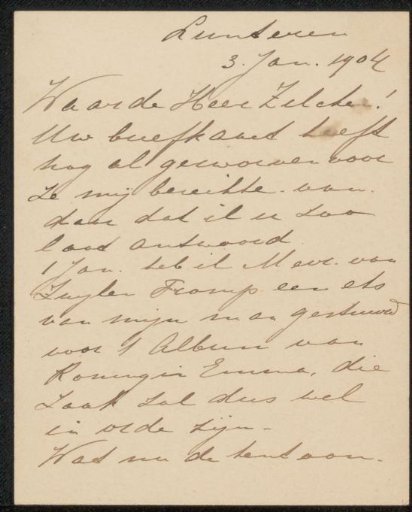 Lunteren
3. Jan. 1904
Waarde Heer Zilcken!
Uw briefkaart heeft
nog al gezworven voor
ze mij bereikte. van.
daar dat ik u zoo
laat antwoord
1 Jan. heb ik Mevr. van
Zuylen Tromp een ets
van mijn man gestuurd
voor 't Album van
Koningin Emma, die
zaak zal dus wel
in orde zijn.-
Wat nu de tentoon-